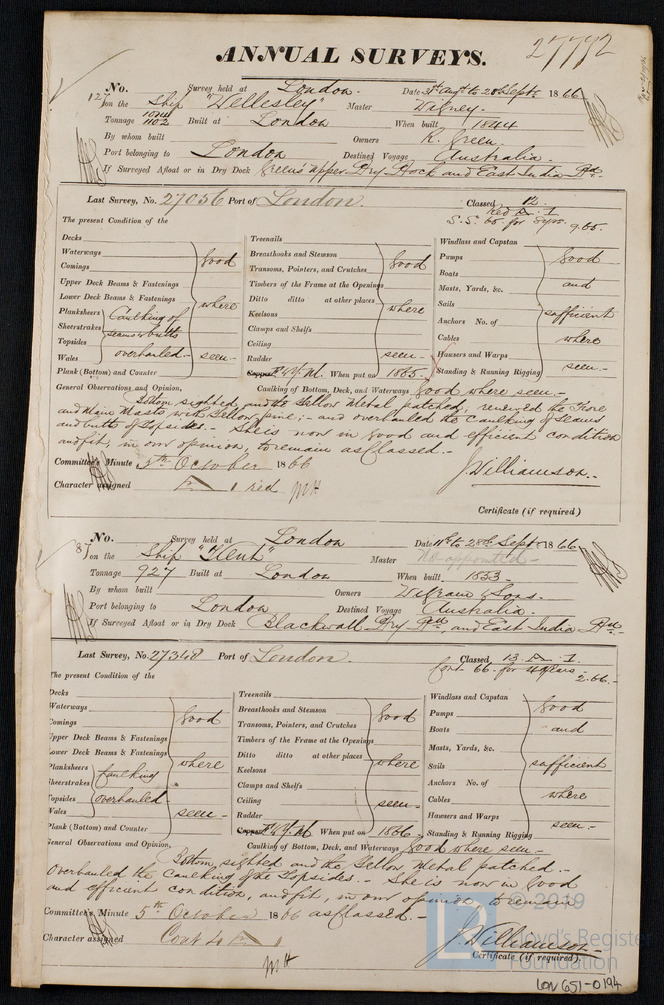 27772
ANNUAL SURVEYS.
No. Survey held at London. Date 31st Augt to 28 Septr 1866
127 on the Ship "Wellesley" Master
Tonnage 1014 1102 Built at London When built 1844
By whom built Owners R. Green
Port belonging to London Destined Voyage Australia.
If Surveyed Afloat or in Dry Dock Green's upper Dry Dock and East India
Last Survey, No. 27056 Port of London. Classed, 12
Red A. 1
S.S. 65. for 9.65.
The present Condition of the
Decks
Waterways
Comings
Upper Deck Beams & Fastenings
Lower Deck Beams & Fastenings
Planksheers
Sheerstrakes
Topsides
Wales
Plank (Bottom) and Counter
good
where
Caulking of
seams & butts
overhauled-
seen-
Treenails
Breasthooks and Stemson
Transoms, Pointers, and Crutches
Timbers of the Frame at the Openings
Ditto ditto at other places
Keelsons
Clamps and Shelfs
Ceiling
Rudder
Copper Y.M. When put on 1865-
good
where
seen-
Windlass and Capstan
Pumps
Boats
Masts, Yards, &c.
Sails
Anchors No. of
Cables
Hausers and Warps
Standing & Running Rigging
good
and
sufficient
where
seen-
General Observations and Opinion, Caulking of Bottom, Deck, and Waterways Good where seen-
Bottom sighted and the Yellow Metal patched, renewed the Fore
and Main Masts with Yellow pine;- and overhauled the Caulking of Seams
and butts of Topsides.- She is now in good and efficient condition
and fit, in our opinion, to remain as classed.-
Committee's Minute 5th October 1866
J. Williamson.
Character assigned A 1 red
Certificate (if required)
No. Survey held at London Date 11th to 28th Septr 1866
87 on the Ship "Kent" Master No appointed-
Tonnage 927 Built at London When built 1853-
By whom built Owners Wigram & Sons.
Port belonging to London Destined Voyage Australia.
If Surveyed Afloat or in Dry Dock Blackwall Dry and East India
Last Survey, No. 27348 Port of London. Classed 13 A. 1.
Cont 66. for 4 years
2.66.-
The present Condition of the
Decks
Waterways
Comings
Upper Deck Beams & Fastenings
Lower Deck Beams & Fastenings
Planksheers
Sheerstrakes
Topsides
Wales
Plank (Bottom) and Counter
good
where
Caulking
overhauled-
seen-
Treenails
Breasthooks and Stemson
Transoms, Pointers, and Crutches
Timbers of the Frame at the Openings
Ditto ditto at other places
Keelsons
Clamps and Shelfs
Ceiling
Rudder
Copper Y.M When put on 1866-
good
where
seen-
Windlass and Capstan
Pumps
Boats
Masts, Yards, &c.
Sails
Anchors No. of
Cables
Hawsers and Warps
Standing & Running Rigging
good
and
sufficient
where
seen-
General Observations and Opinion, Caulking of Bottom, Deck, and Waterways Good where seen-
Bottom sighted and the Yellow Metal patched.-
Overhauled the Caulking of the Topsides.- She is now in good
and efficient condition, and fit, in our opinion, to remain
as classed.-
Committee's Minute 5th October 1866
J. Williamson-
Character assigned Cont 4 A 1
Certificate (if required).
© 2019
Lloyd's Register
Foundation
LON 651-0194